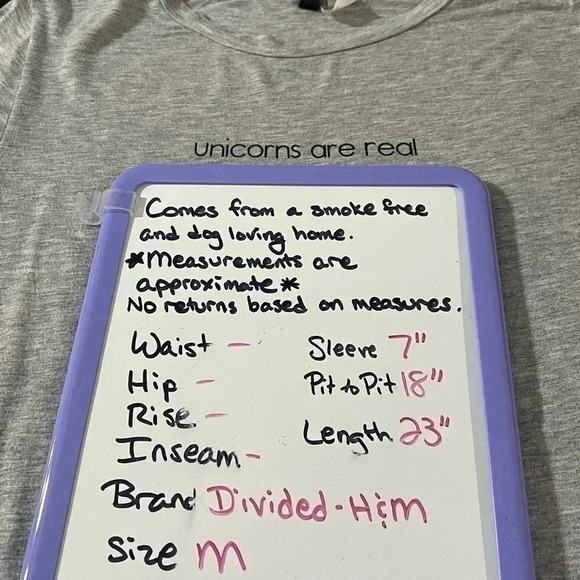 unicorns are real
Comes from a smoke free
and dog loving home.
*Measurements are
approximate*
No returns based on measures.
Waist -
Hip -
Rise -
Inseam -
Sleeve 7"
Pit to Pit 18"
Length 23"
Brand Divided - H&M
Size M